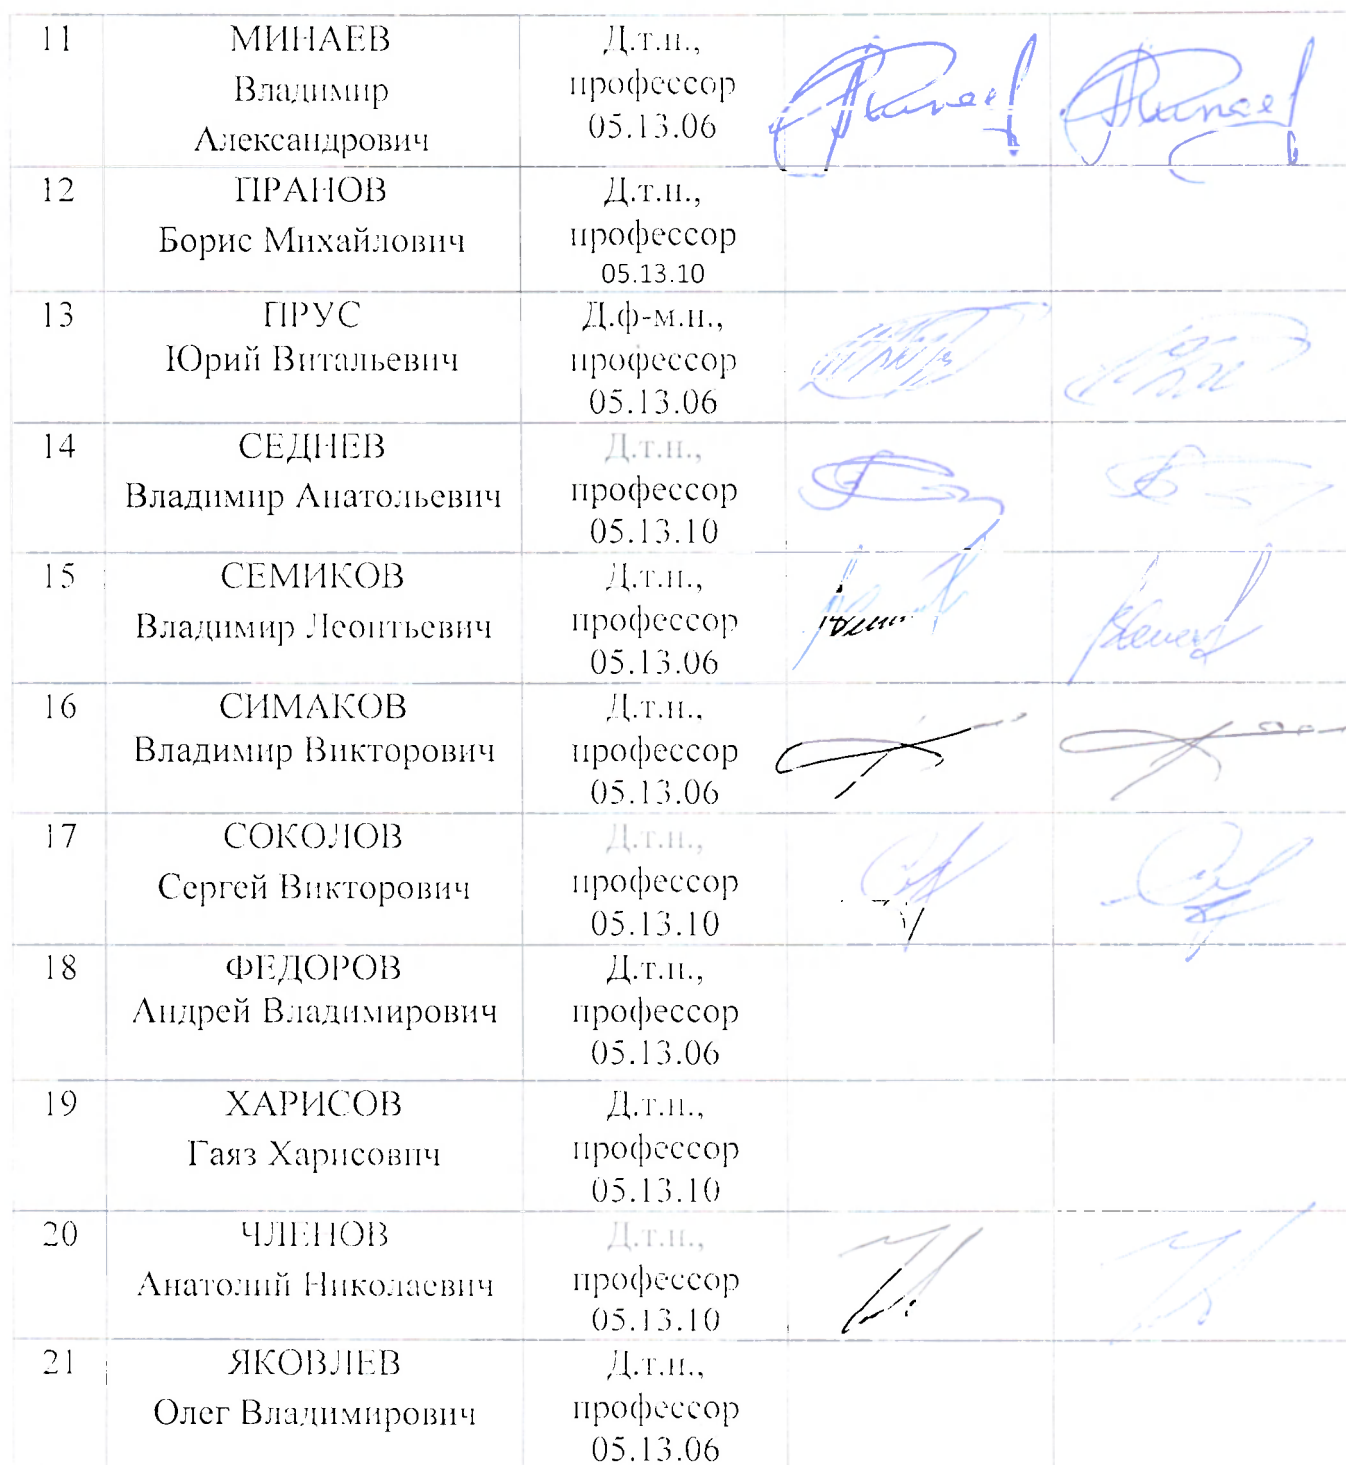 11
МИНАЕВ
Владимир
Александрович
Д.т.н.,
профессор
05.13.06
12
ПРАНОВ
Борис Михайлович
Д.т.н.,
профессор
05.13.10
13
ПРУС
Юрий Витальевич
Д.ф-м.н.,
профессор
05.13.06
14
СЕДНЕВ
Владимир Анатольевич
Д.т.н.,
профессор
05.13.10
15
СЕМИКОВ
Владимир Леонтьевич
Д.т.н.,
профессор
05.13.06
16
СИМАКОВ
Владимир Викторович
Д.т.н.,
профессор
05.13.06
17
СОКОЛОВ
Сергей Викторович
Д.т.н.,
профессор
05.13.10
18
ФЕДОРОВ
Андрей Владимирович
Д.т.н.,
профессор
05.13.06
19
ХАРИСОВ
Гаяз Харисович
Д.т.н.,
профессор
05.13.10
20
ЧЛЕНОВ
Анатолий Николаевич
Д.т.н.,
профессор
05.13.10
21
ЯКОВЛЕВ
Олег Владимирович
Д.т.н.,
профессор
05.13.06